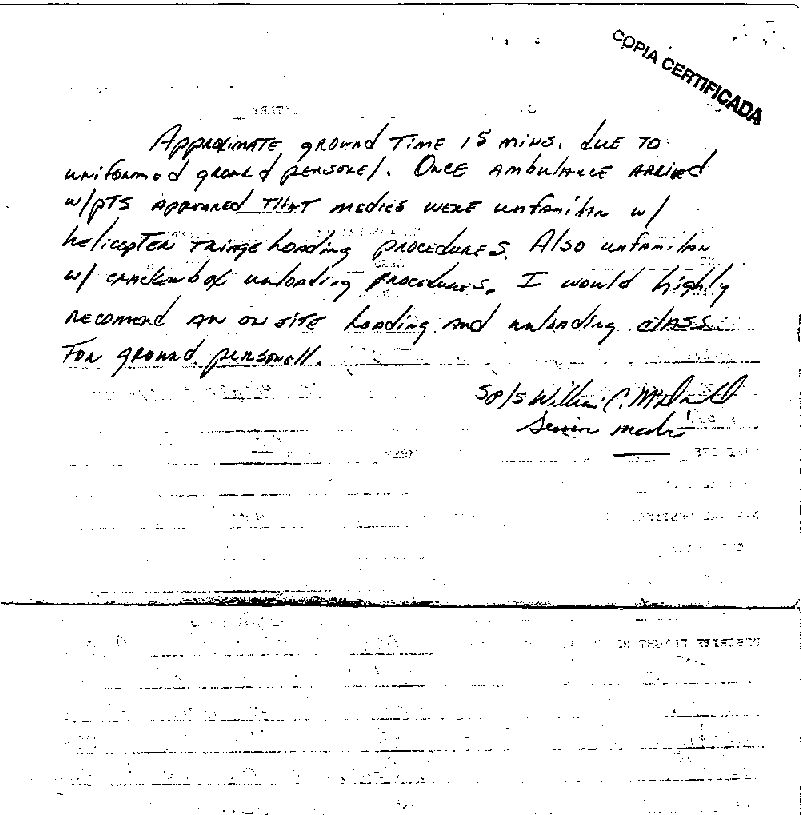 COPIA CERTIFICADA
Approximate ground Time 15 mins. due to
uniformed ground personel. Once ambulance arrived
w/pts appeared that medics were unfamiliar w/
helicopter triage loading procedures. Also unfamiliar
w/ crackerbox unloading procedures. I would highly
recomend an on site loading and unloading class
for ground personell.
SP/5 William C.
Senior medic